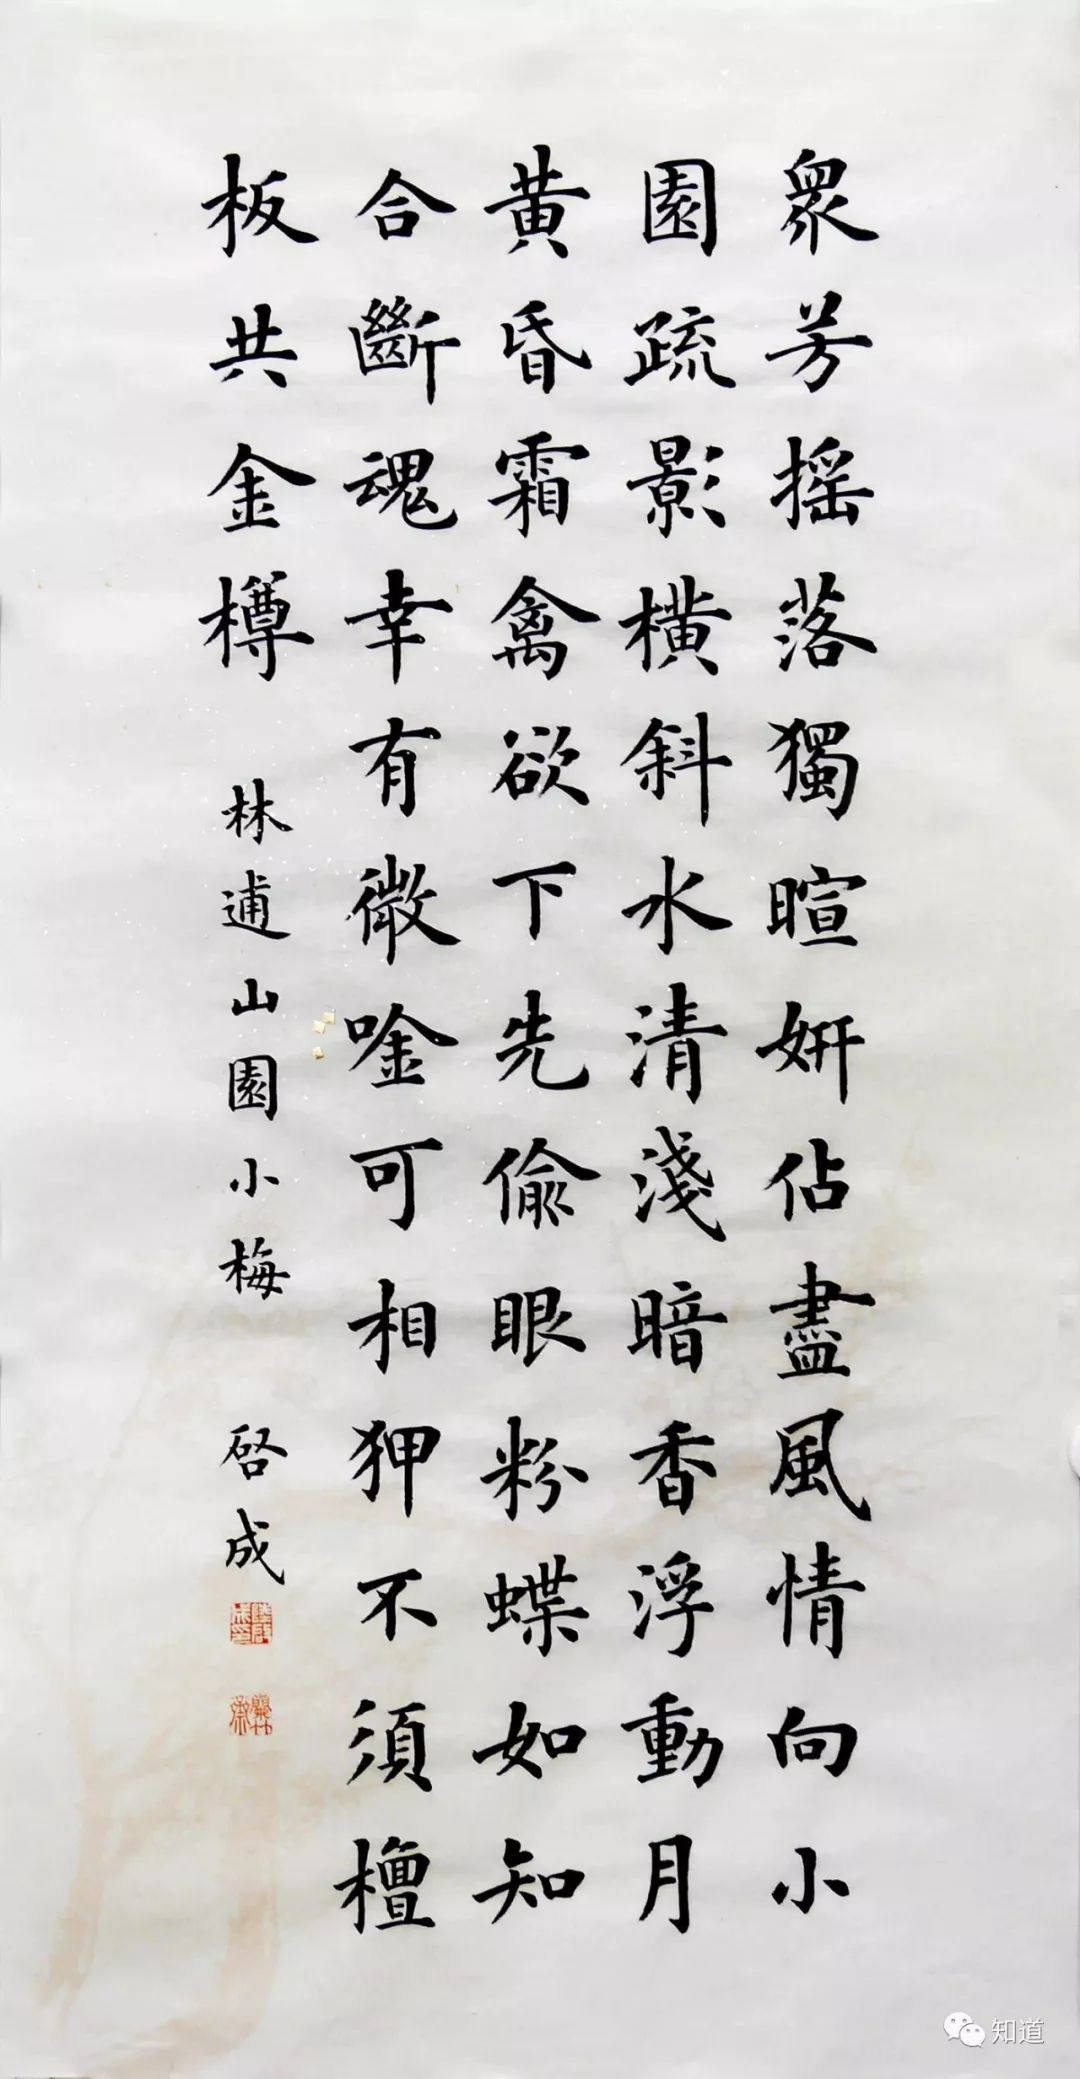 眾芳摇落獨暄妍佔盡風情向小
園疏影橫斜水清淺暗香浮動月
黄昏霜禽欲下先偷眼粉蝶如知
合斷魂幸有微唫可相狎不須檀
板共金樽
林逋山園小梅
啓成
知道